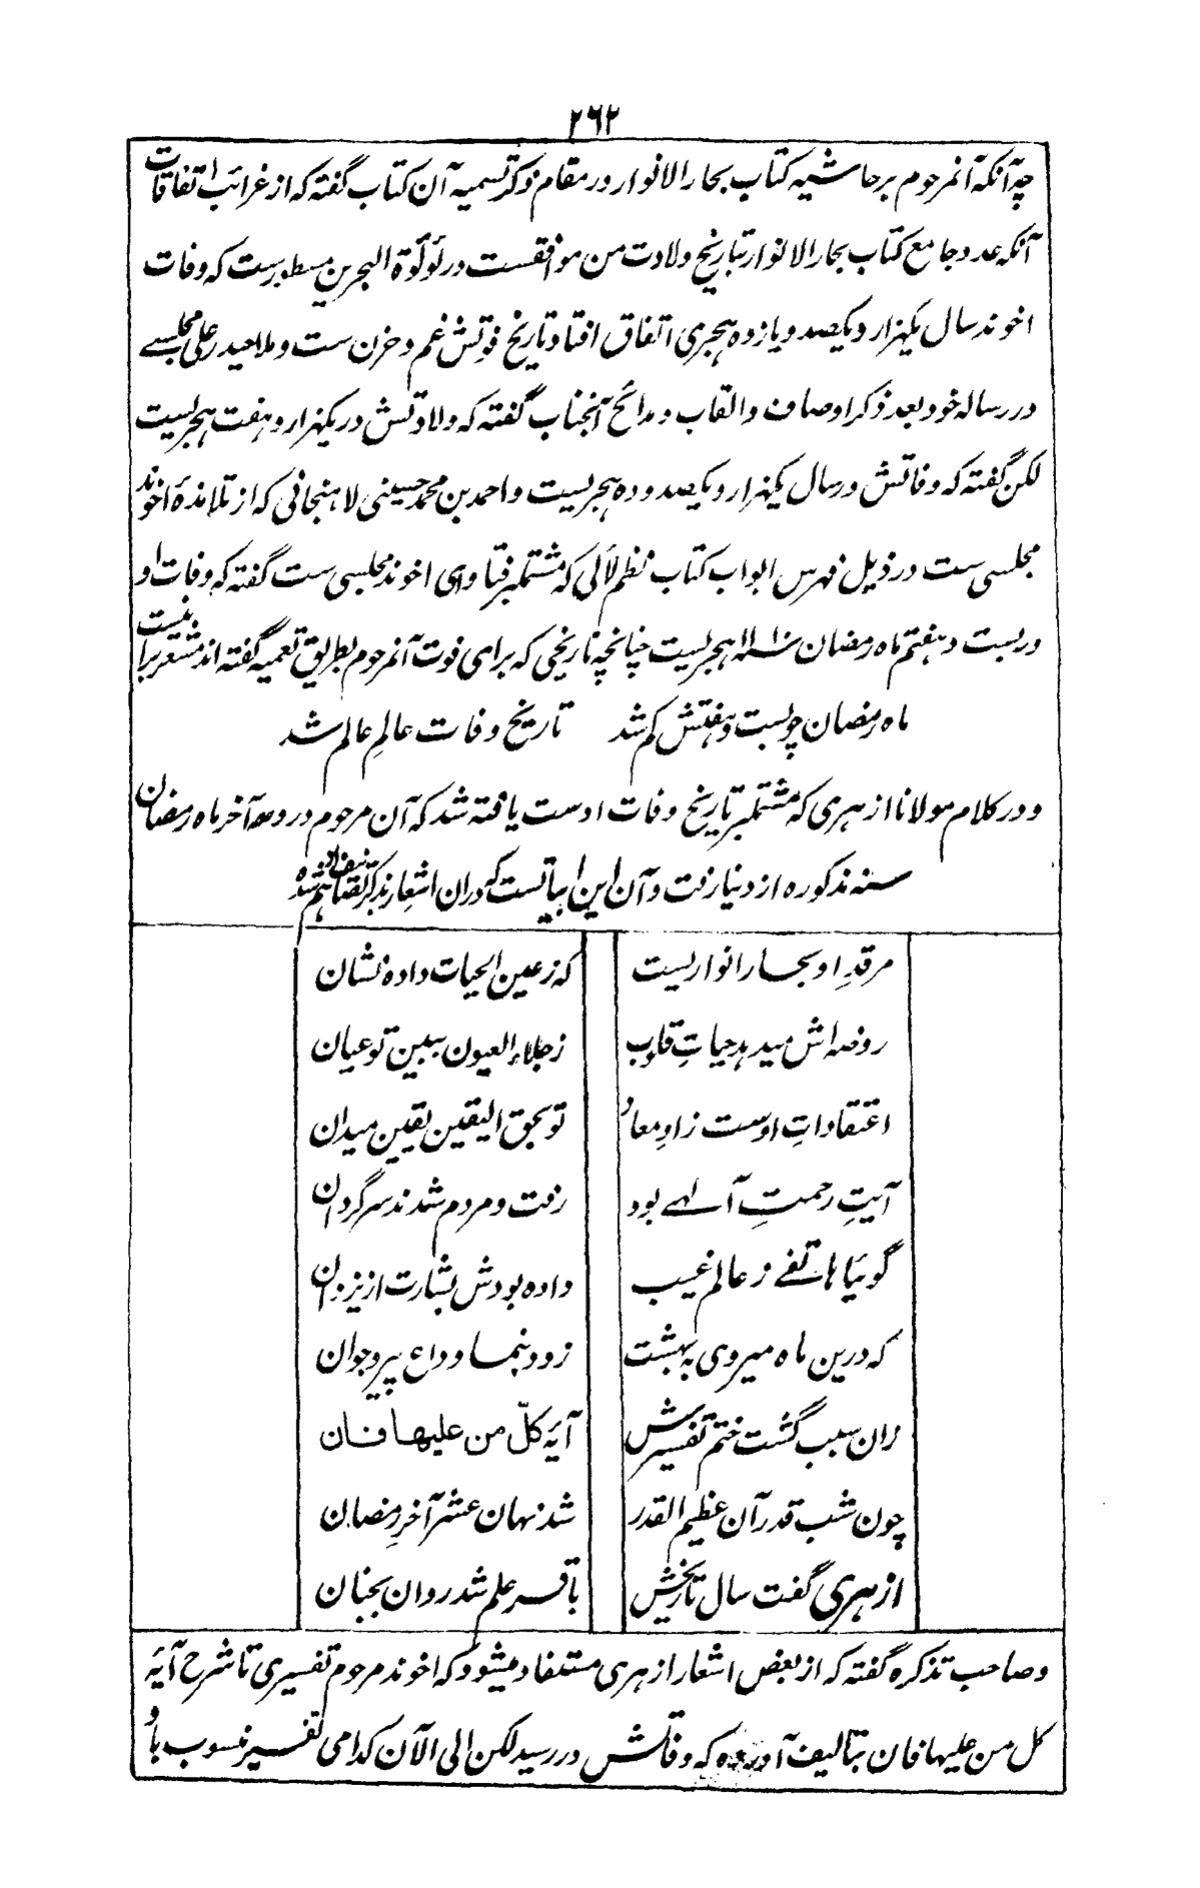 ۲۶۲
چه آنکه آنمرحوم برحاشیه کتاب بحار الانوار در مقام ذکر تسمیه آن کتاب گفته که از غرائب اتفاقات
آنکه عدد جامع کتاب بحار الانوار بتاریخ ولادت من موافقست در لؤلؤة البحرین مسطورست که وفات
اخوند سال یکهزار و یکصد و یازده هجری اتفاق افتاد تاریخ فوتش غم و حزن ست و ملا حیدر علی مجلسے
در رساله خود بعد ذکر اوصاف و القاب و مدائح آنجناب گفته که ولادتش در یکهزار و هفت هجریست
لکن گفته که وفاتش در سال یکهزار و یکصد و ده هجریست و احمد بن محمد حسینی لاهنجانی که از تلامذهٔ اخوند
مجلسی ست در ذیل فهرس ابواب کتاب نظم لآلی که مشتملبر فتاوای اخوند مجلسی ست گفته که وفات او
در بست و هفتم ماه رمضان سنه ۱۱۱۰ هجریست چنانچه تاریخی که برای فوت آنمرحوم بطریق تعمیه گفته اند مشعر براینست
ماه رمضان چو بست و هفتش کم شد تاریخ وفات عالمِ عالم شد
و در کلام مولانا ازهری که مشتملبر تاریخ وفات اوست یافته شد که آن مرحوم در دهه آخر ماه رمضان
سنه مذکوره از دنیا رفت و آن این ابیاتست که دران اشعار بذکر تصانیف او هم شده
مرقدِ او بحار انواریست که ز عین الحیات داده نشان
روضه اش میدهد حیاتِ قلوب ز جلاء العیون ببین تو عیان
اعتقاداتِ اوست زادِ معاد تو بحق الیقین یقین میدان
آیتِ رحمتِ آلهے بود رفت و مردم شدند سرگردان
گوئیا هاتفے ز عالم غیب داده بودش بشارت از یزدان
که درین ماه میروی به بهشت زود بنما وداع پیر و جوان
زان سبب گشت ختم تفسیرش آیهٔ کلّ من علیها فان
چون شب قدر آن عظیم القدر شد نهان عشر آخرِ رمضان
ازهری گفت سال تاریخش باقر علم شد روان بجنان
و صاحب تذکره گفته که از بعض اشعار ازهری مستفاد میشود که اخوند مرحوم تفسیری تا شرح آیهٔ
کل من علیها فان بتالیف آورده که وفاتش در رسید لکن الی الآن کدامی تفسیر منسوب باو